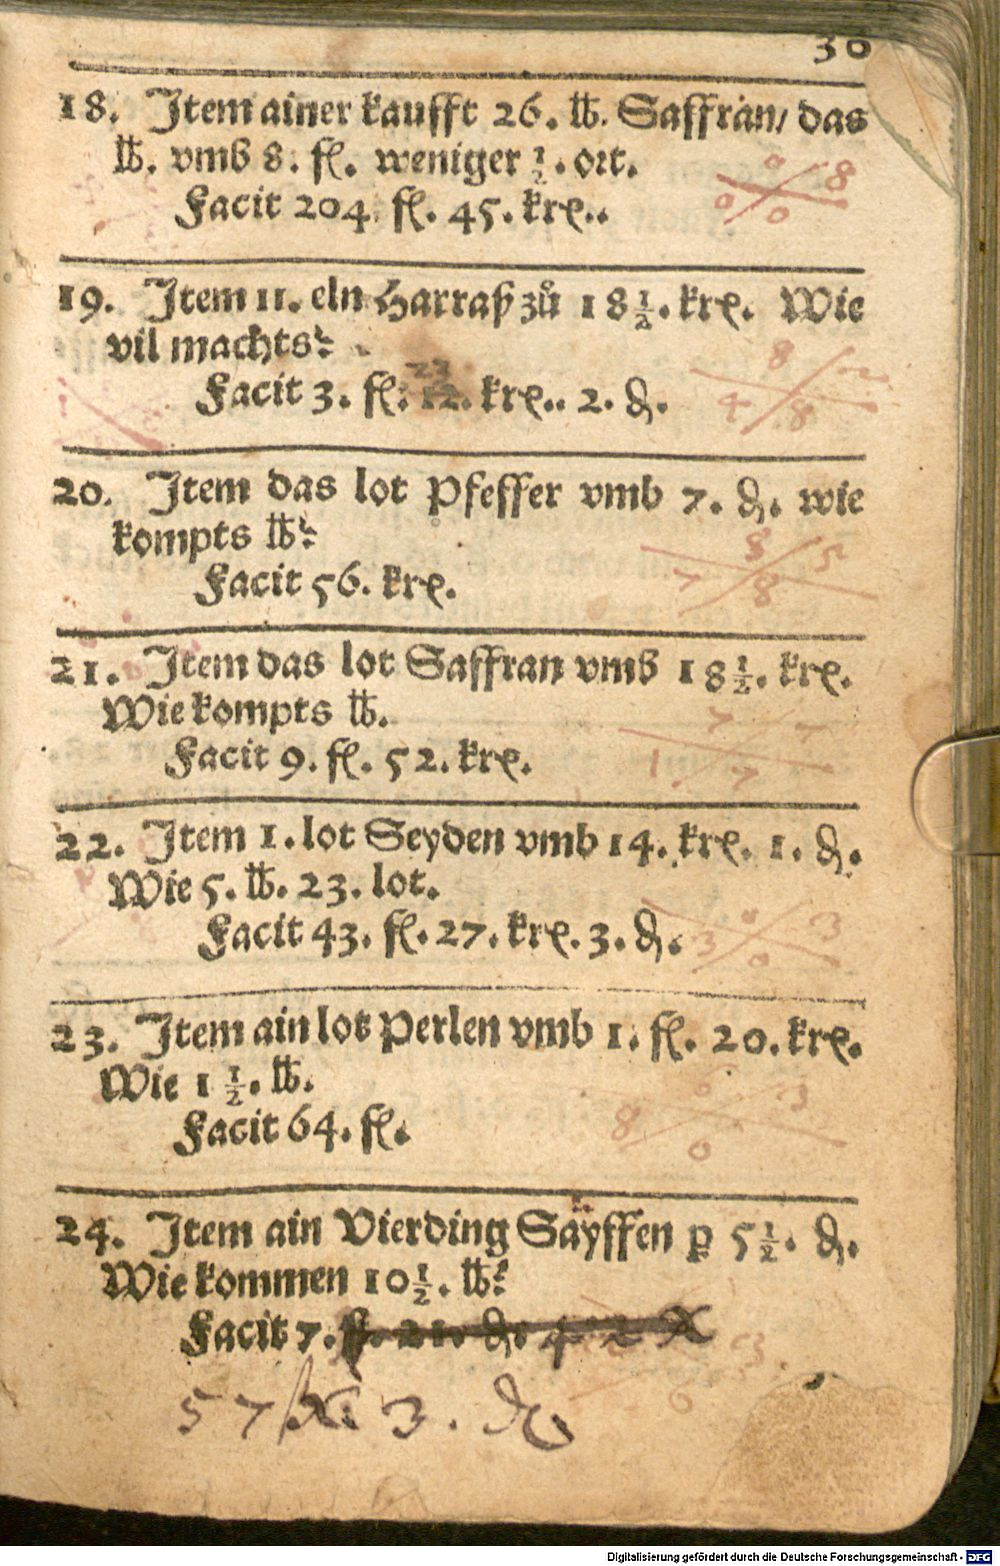 36
18. Item ainer kaufft 26. ℔. Saffran/ das
℔. vmb 8. fl. weniger ½. ort.
Facit 204. fl. 45. kre..
19. Item 11. eln Harraß zů 18½. kre. Wie
vil machts?
Facit 3. fl. 23. kre.. 2. ₰.
20. Item das lot Pfeffer vmb 7. ₰. wie
kompts ℔?
Facit 56. kre.
21. Item das lot Saffran vmb 18½. kre.
Wie kompts ℔.
Facit 9. fl. 52. kre.
22. Item 1. lot Seyden vmb 14. kre. 1. ₰.
Wie 5. ℔. 23. lot.
Facit 43. fl. 27. kre. 3. ₰.
23. Item ain lot Perlen vmb 1. fl. 20. kre.
Wie 1½. ℔.
Facit 64. fl.
24. Item ain Vierding Säyffen p 5½. ₰.
Wie kommen 10½. ℔?
Facit 7. ß. 21. ₰.
57 3. ₰
Digitalisierung gefördert durch die Deutsche Forschungsgemeinschaft - DFG